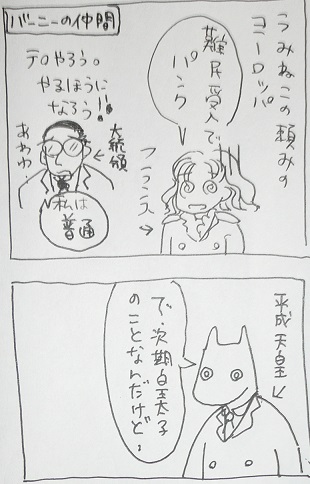 バーニーの仲間
うみねこの頼みの
ヨーロッパ
難民受入で
パンク
フランス
テロやろう。
やるほうに
なろう!!
大統領
あわわ!
私は
普通
平成天皇
で、次期皇太子
のことなんだけど…